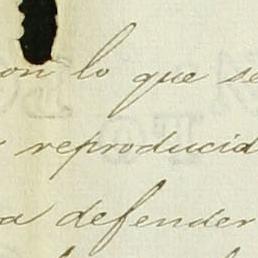 on lo que se
reproducid
a defender